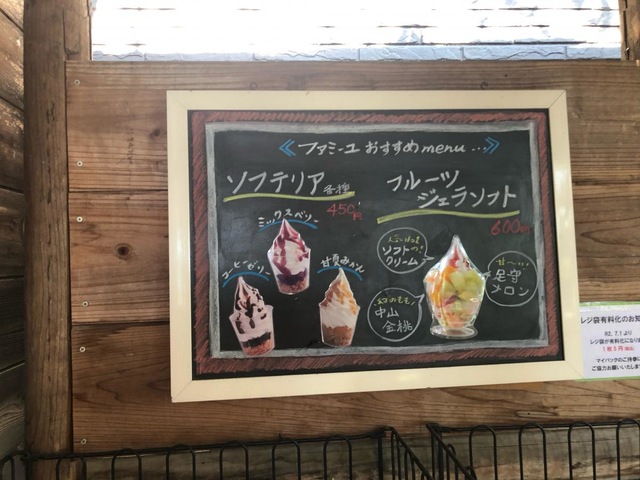 ファミーユおすすめmenu...
ソフテリア 各種
450円
ミックスベリー
コーヒーゼリー
甘夏みかん
フルーツ
ジェラソフト
600円
ソフト
クリーム
甘〜い
足守
メロン
幻のもも!
中山
金桃
レジ袋有料化のお知
R2.7.1より
レジ袋が有料化になりま
1枚5円(税込)
マイバックのご持参に
ご協力お願いいたしま